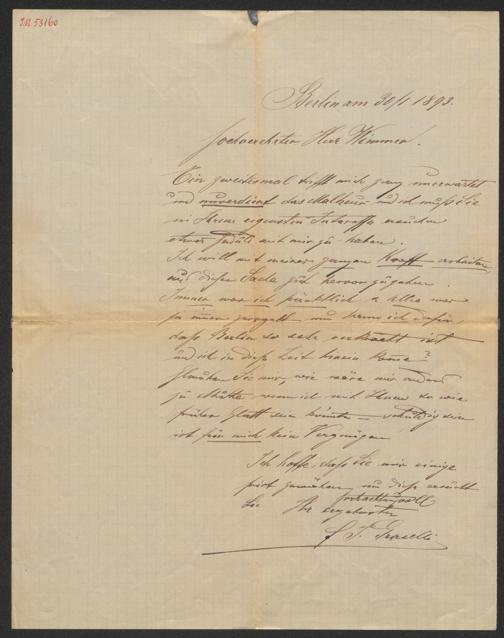 I.N. 53160
Berlin am 30/1 1893.
Hochverehrter Herr Wimmer.
Ein zweitesmal trifft mich ganz unerwartet
und unverdient das Malheur und ich muß Sie
in Ihrem eigensten Interesse ersuchen
etwas Geduld mit mir zu haben.
Ich will mit meiner ganzen Kraft arbeiten
aus dieser Sache gut hervorzugehen.
Immer war ich pünktlich u alles war
zu immer geregelt nun kann ich dafür,
daß Berlin so sehr verkracht ist
und ich in diese Zeit hinein komme?
Glauben Sie mir, wie wäre mir anders
zu Muthe wenn ich mit Ihnen so wie
früher glatt sein könnte – schuldig sein
ist für mich kein Vergnügen
Ich hoffe, daß Sie mir einige
Frist gewähren, um diese ersucht
Sie hochachtungsvoll
Ihr ergebenster